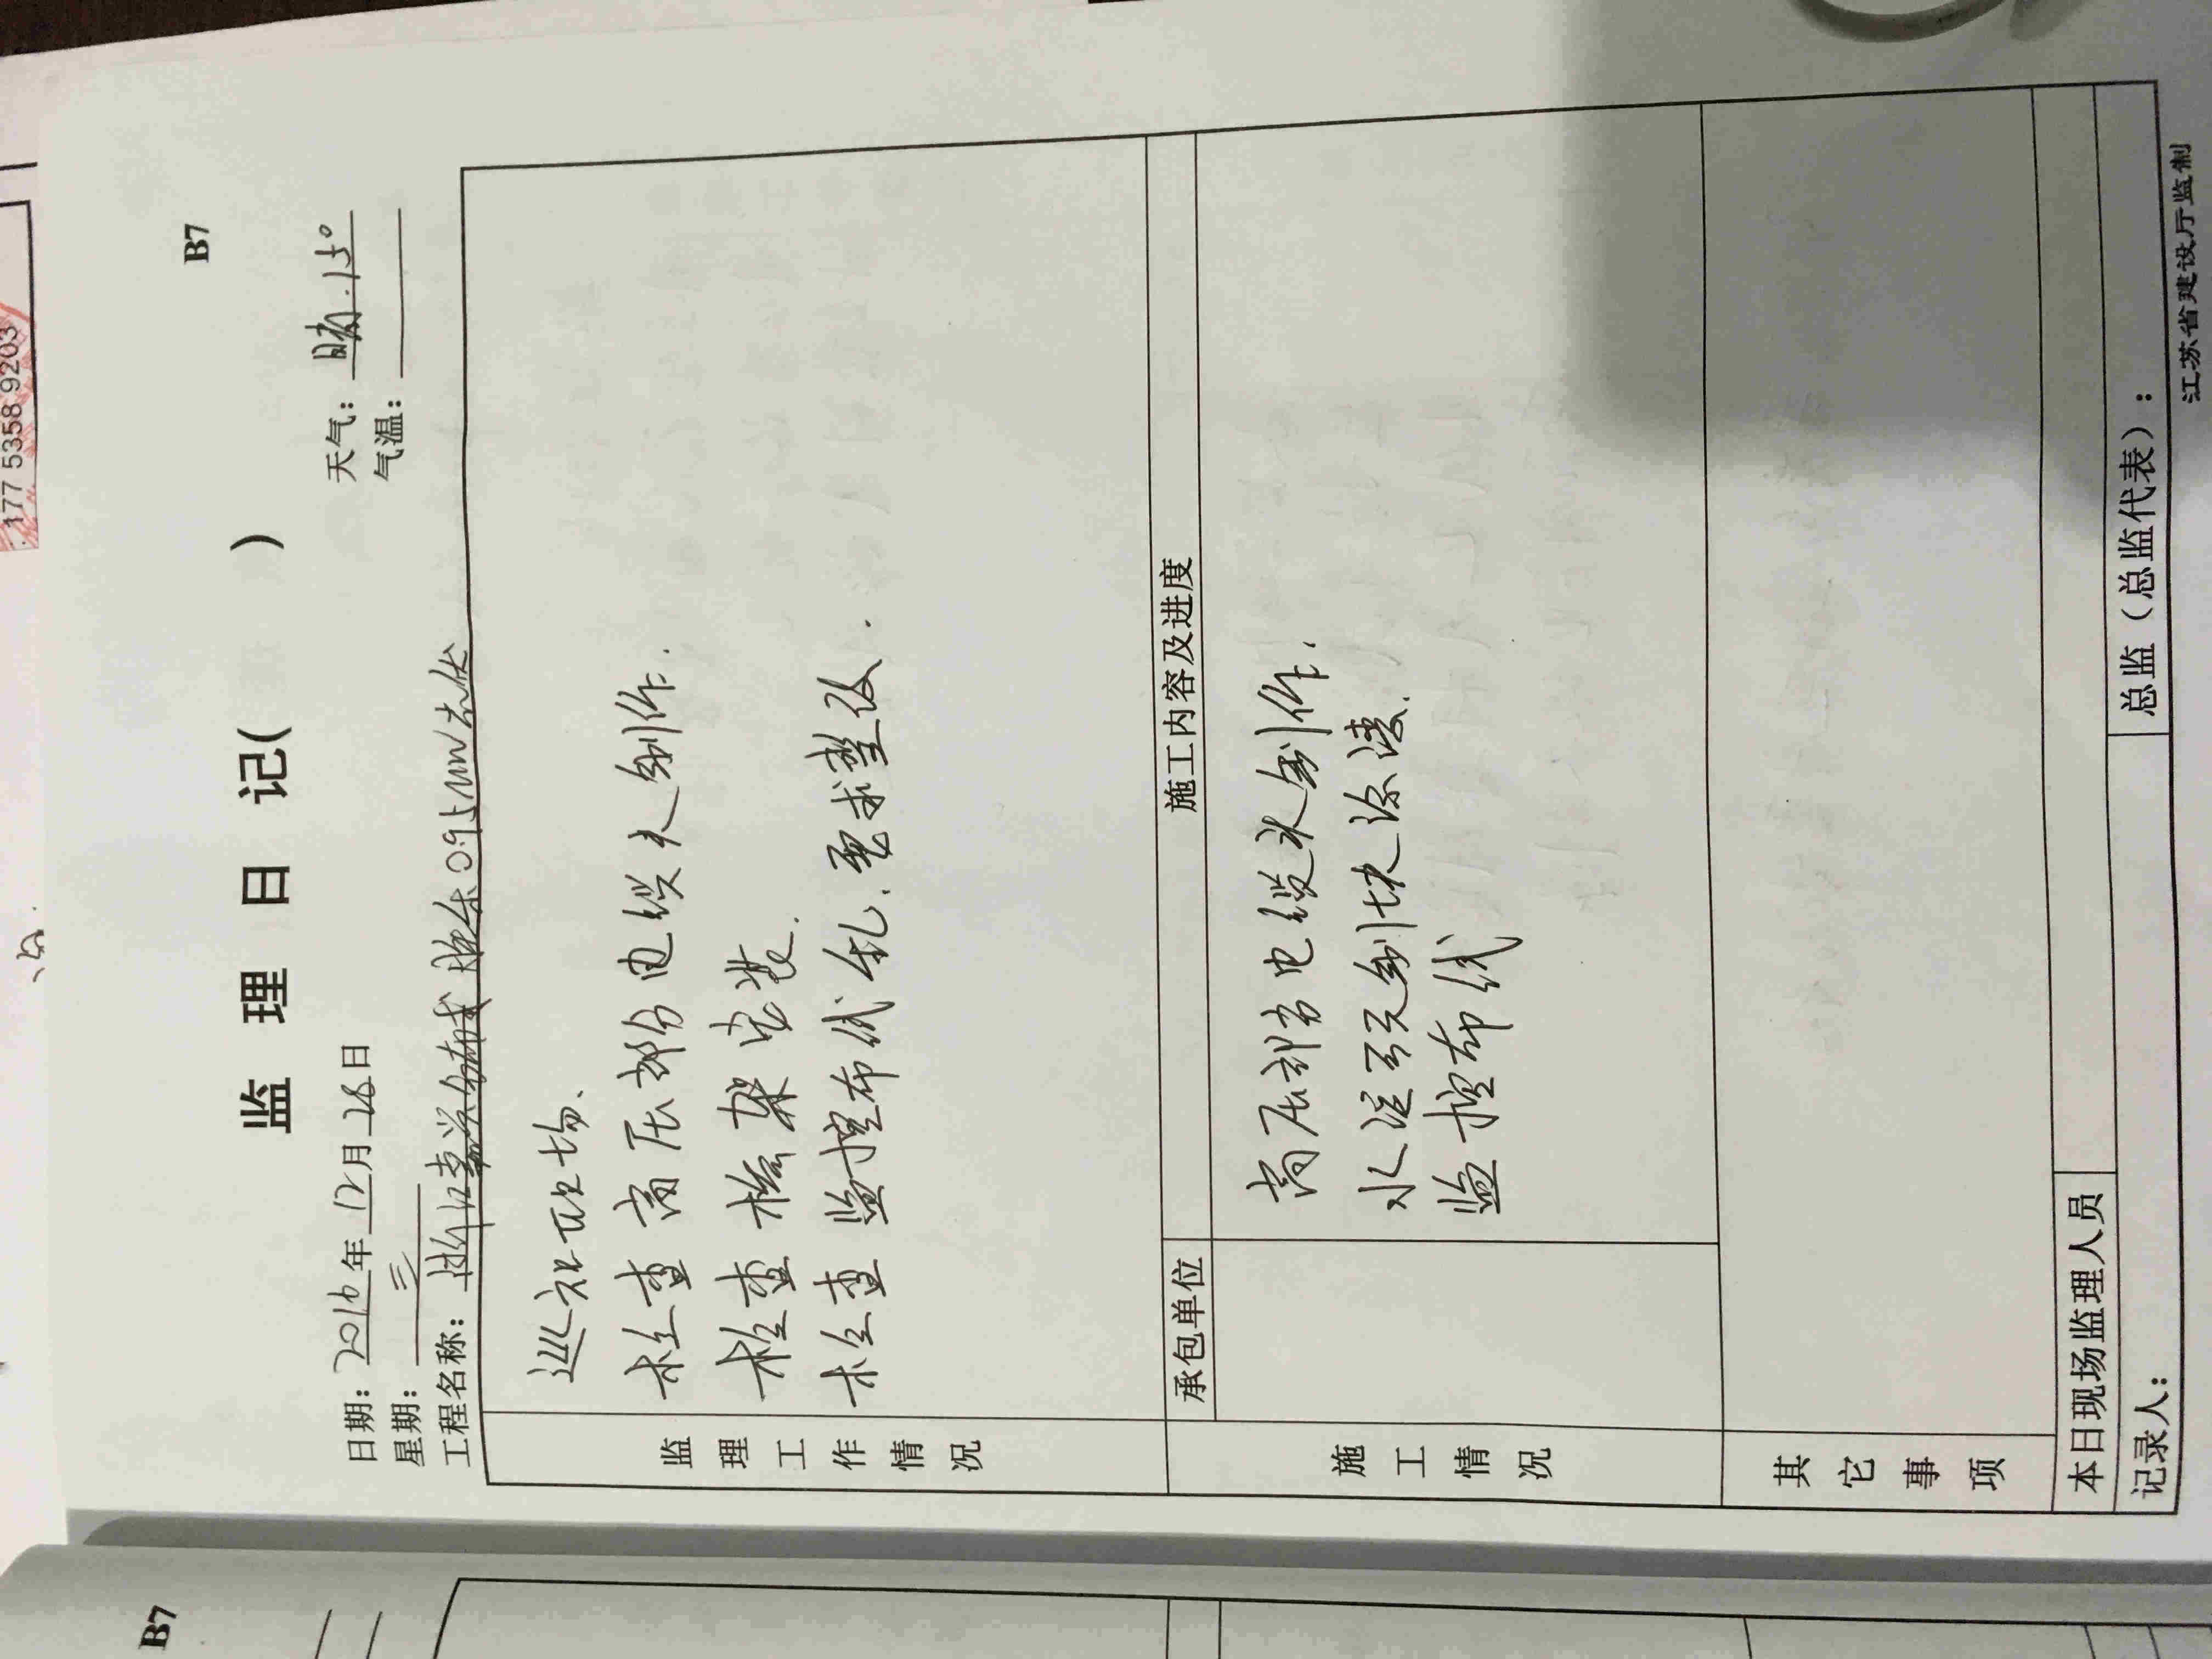 177 5358 9203
B7
监 理 日 记( )
日期：2016年12月28日
天气：晴.15°
星期：三
气温：
工程名称：浙江嘉兴
巡视现场、
检查高压部分电缆头制作.
检查桥架安装.
检查监控布线乱、要求整改.
监理工作情况
承包单位
施工内容及进度
高压部分电缆头制作.
监控布线
施工情况
其它事项
本日现场监理人员
记录人：
总监（总监代表）：
江苏省建设厅监制
B7